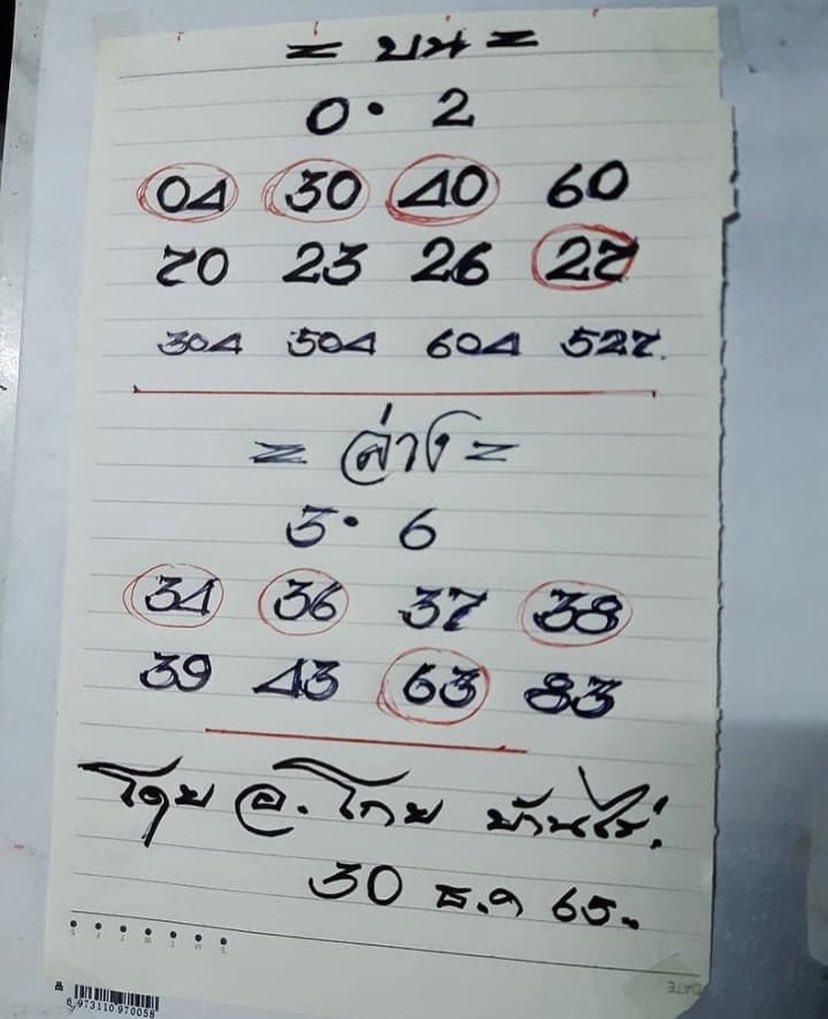 = บน =
0 · 2
04 30 40 60
70 23 26 27
304 504 604 527.
= ล่าง =
3 · 6
34 36 37 38
39 43 63 83
โดย อ. โกย บ้านไร่.
30 ธ.ค 65.
S F T W T M S
DATE
6 973110 970058